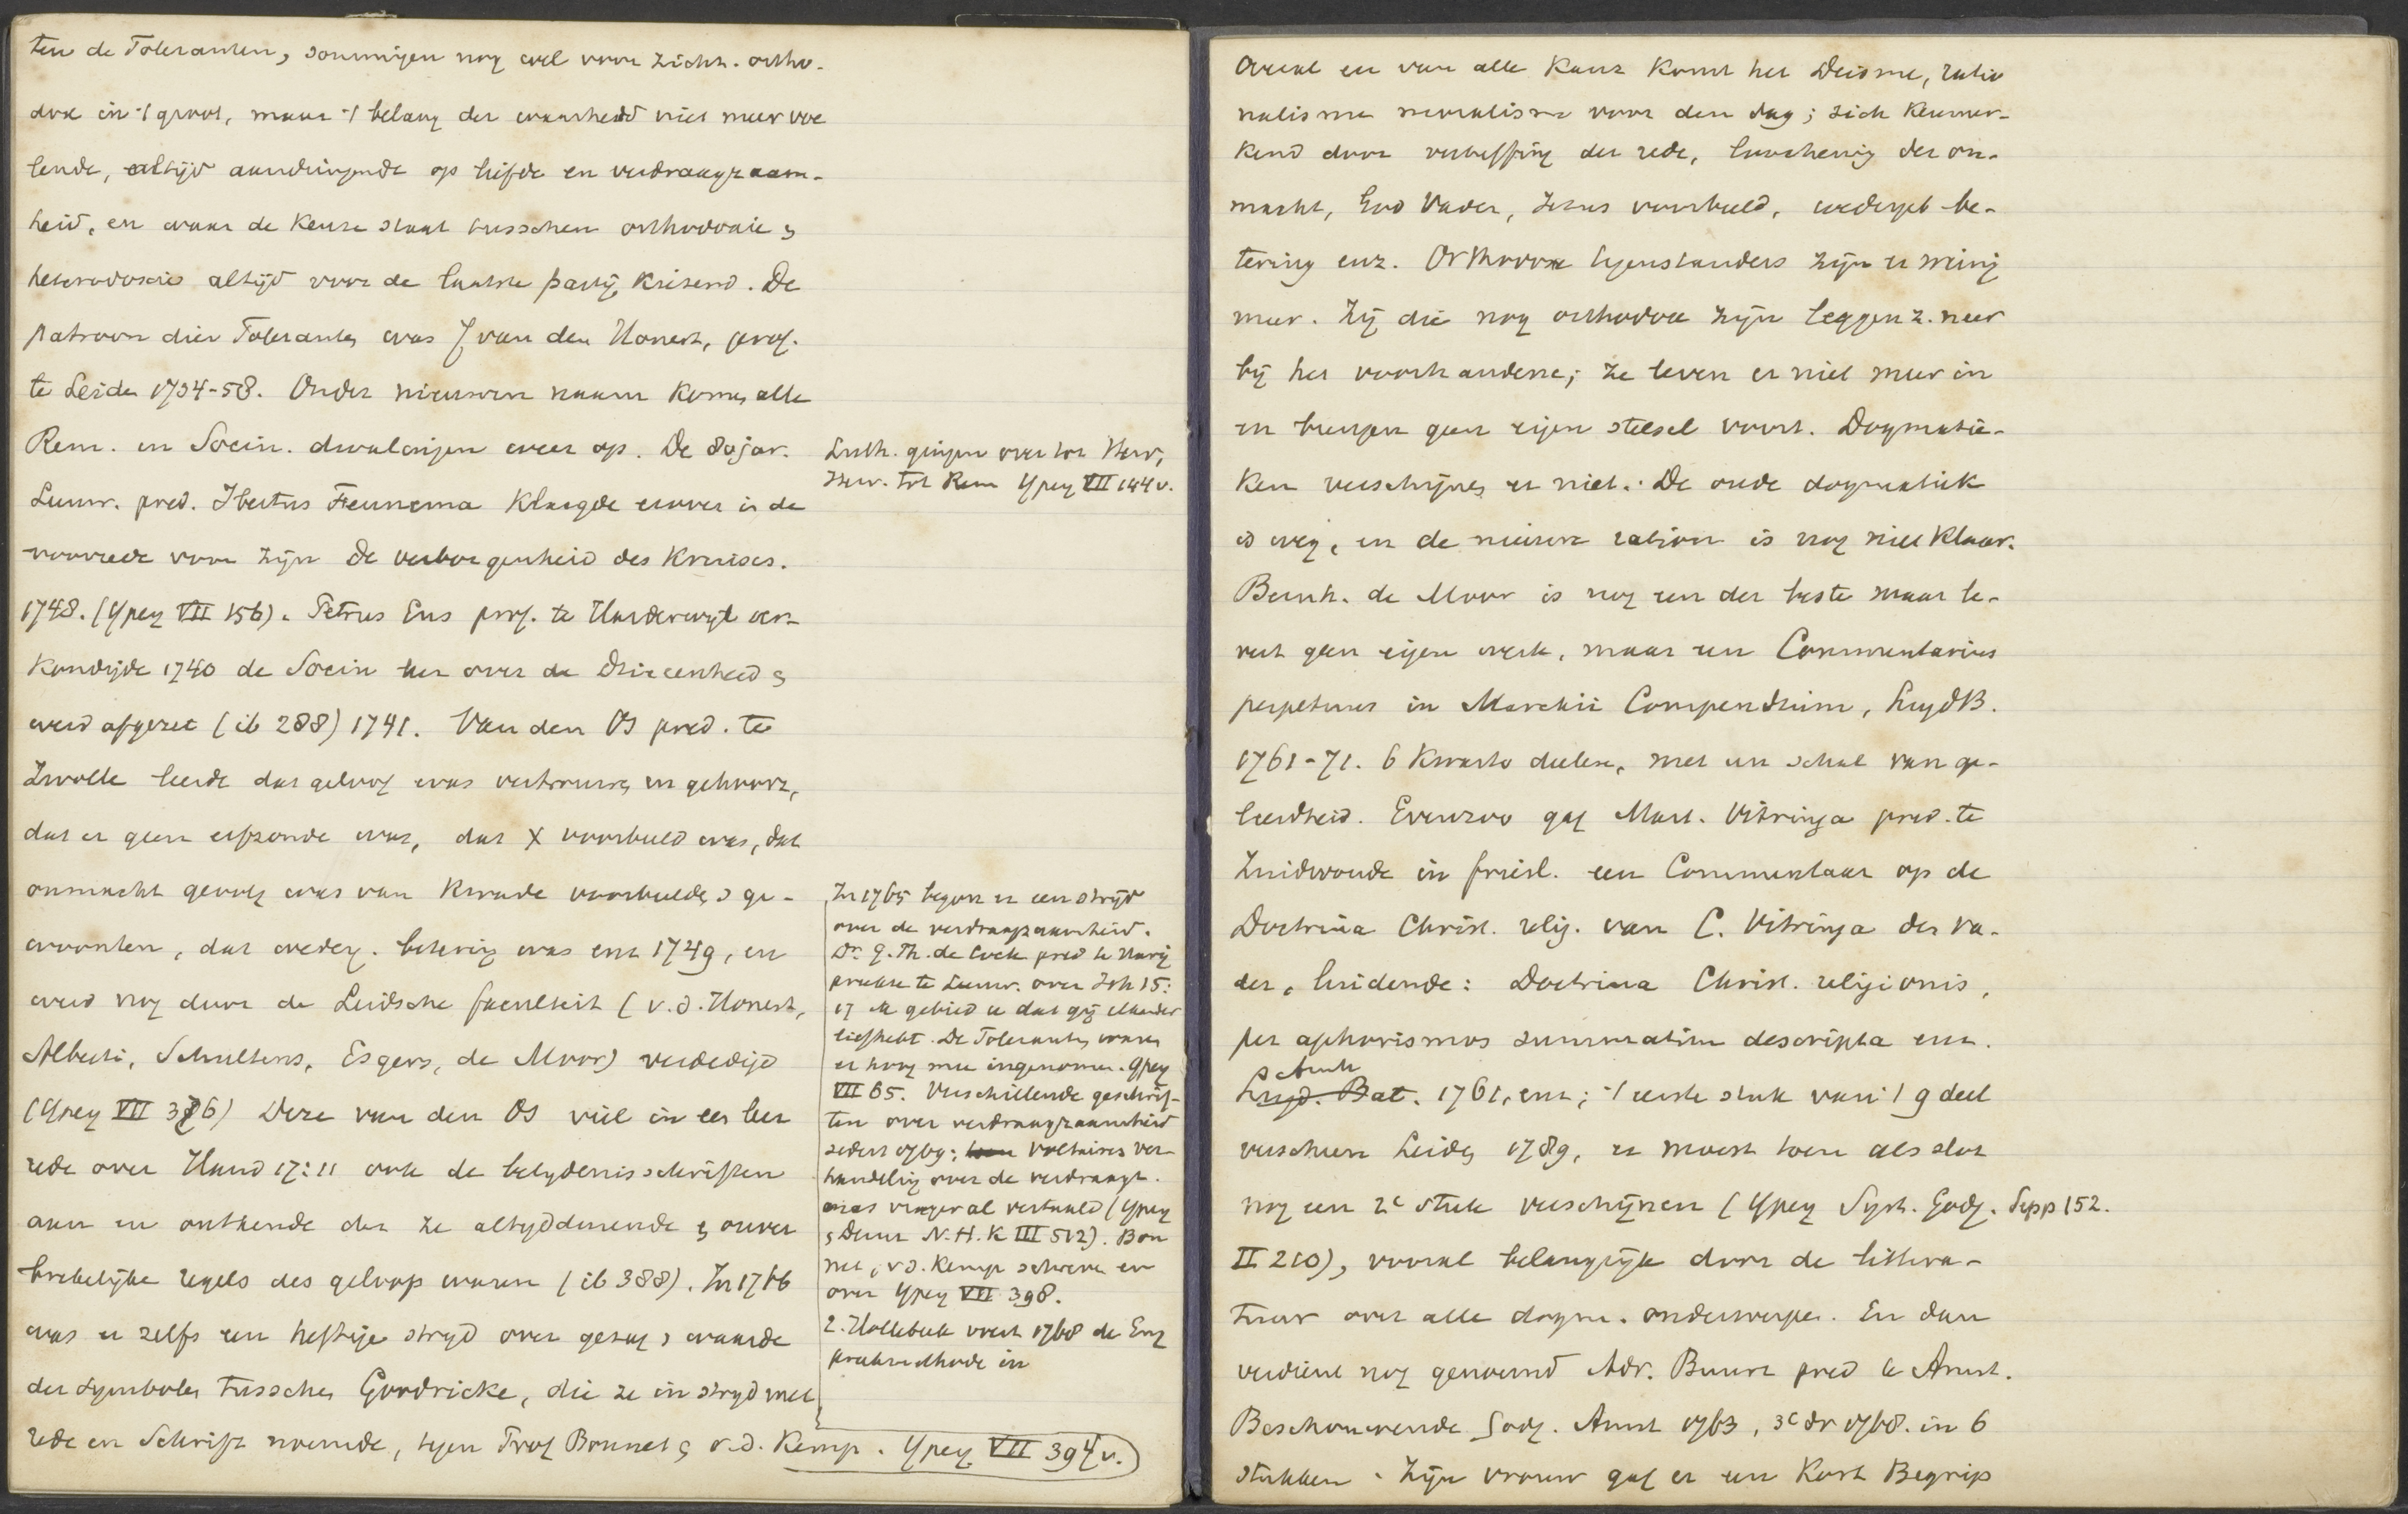 ten de Toleranten, sommigen nog wel voor zich. ortho-
dox in 't groot, maar 't belang der waarheid niet meer voe
lende, altijd aandringende op liefde en verdraagzaam-
heid, en waar de keuze staat tusschen orthodoxie &
heterodoxie altijd voor de laatste partij kiezend. De
patroon dier Toleranten was J van den Honert, prof.
te Leiden 1734-58. Onder nieuwen naam komen alle
Rem. en Socin. dwalingen weer op. De 80jar.
Leeuw. pred. Ibertus Fennema klaagde erover in de
voorrede voor zijn De verborgenheid des Kruises.
1748. (Ypey VII 156). Petrus Ens prof. te Harderwijk ver-
kondigde 1740 de Socin leer over de Drieeenheid &
werd afgezet (ib 288) 1741. Van den Os pred. te
Zwolle leerde dat geloof was vertrouwen en gehoorz,
dat er geen erfzonde was, dat X voorbeeld was, dat
onmacht gevolg was van kwade voorbeelden & ge-
woonten, dat wederg. betering was enz 1749, en
werd nog door de Leidsche faculteit (v.d. Honert,
Alberti, Schultens, Esgers, de Moor) verdedigd
(Ypey VII 376) Deze van den Os viel in een leer
rede over Hand 17:11 ook de belydenisschriften
aan en ontkende dat ze altyddurende & onver
brekelijke regels des geloofs waren (ib 388). In 1766
was er zelfs een heftige stryd over gezag & waarde
der symbolen tusschen Goodricke, die ze in stryd met
rede en Schrift noemde, tegen Prof Bonnet & v.d. Kemp. Ypey VII 394v.
Luth. gingen over tot Herv,
Herv. tot Rem Ypey VII 144v.
In 1765 begon er een strijd
over de verdraagzaamheid.
Dr. G. Th. de Cock pred te Harig
preekte te Leeuw. over Joh 15:
17 Ik gebied u dat gij elkander
liefhebt. De Toleranten waren
er hoog mee ingenomen. Ypey
VII 65. Verschillende geschrif-
ten over verdraagzaamheid
sedert 1769; Voltaires ver-
handeling over de verdraagz.
was vroeger al vertaald (Ypey
& Derm N.H.K III 512). Bon
net, v.d. Kemp schreven er
over Ypey VII 398.
2. Hollebeek voert 1768 de Eng
preekmethode in
Overal en van alle kanz komt het Deisme, ratio
nalisme neuralisme voor den dag; zich kenmer-
kend door verheffing der rede, loochening der on-
macht, God Vader, Jezus voorbeeld, wedergeb be-
tering enz. Orthodoxe tegenstanders zijn er weinig
meer. Zij die nog orthodox zijn leggen z. neer
bij het voorhandene; ze leven er niet meer in
en brengen geen eigen stelsel voort. Dogmatie-
ken verschijnen er niet. De oude dogmatiek
is weg, en de nieuwe ration is nog niet klaar.
Bernh. de Moor is nog een der beste maar le-
vert geen eigen werk, maar een Commentarius
perpetuus in Marckii Compendium, LugdB.
1761-71. 6 Kwarto deelen, met een schat van ge-
leerdheid. Evenzoo gaf Mart. Vitringa pred. te
Zuidwoude in friesl. een Commentaar op de
Doctrina Christ. relig. van C. Vitringa der va-
der, luidende: Doctrina Christ. religionis,
per aphorismos summatim descripta enz.
Arnh
Lugd. Bat. 1761, enz; 't eerste stuk van 't 9 deel
verscheen Leiden 1789, er moest toen als slot
nog een 2e stuk verschijnen (Ypey Syst. Godg. Sepp 152.
II 210), vooral belangrijk door de littera-
tuur over alle dogm. onderwerpen. En dan
verdient nog genoemd Adr. Buurt pred te Amst.
Beschouwende Godg. Amst 1763, 3e dr 1768. in 6
stukken. Zijn vrouw gaf er een Kort Begrip